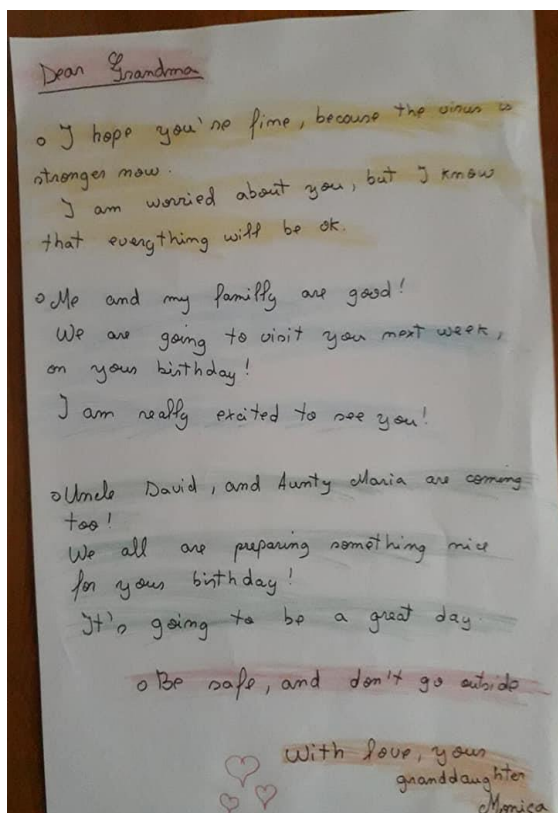 Dear Grandma
o I hope you're fine, because the virus is
stronger now.
I am worried about you, but I know
that everything will be ok.
o Me and my familly are good!
We are going to visit you next week,
on your birthday!
I am really excited to see you!
o Uncle David, and Aunty Maria are coming
too!
We all are preparing something nice
for your birthday!
It's going to be a great day.
o Be safe, and don't go outside
With love, your
granddaughter
Monica